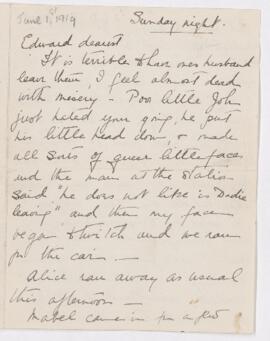 June 1st 1919
Sunday night.
Edward dearest
It is terrible to have one's husband
leave them, I feel almost dead
with misery - Poor little John
just hated your going, he put
his little head down, & made
all sorts of queer little faces
and the man at the station
said "he does not like is Dadie
leaving" and then my face
began to twitch and we ran
for the car. —
Alice ran away as usual
this afternoon —
Mabel came in for a few